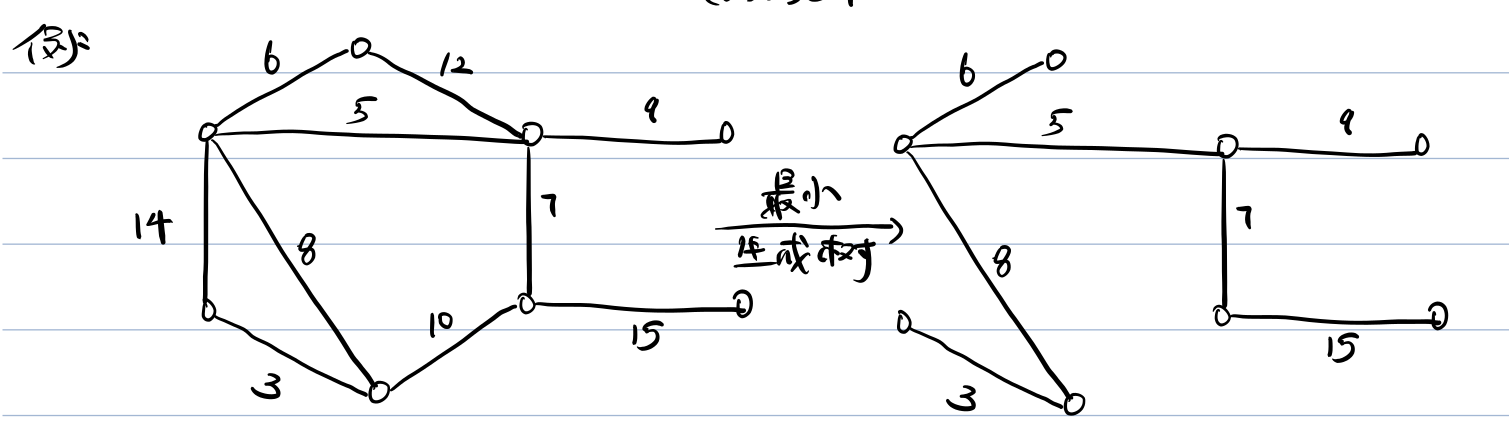 例
6 12
5 9
14 8 7
10 15
3
最小
生成树
6
5 9
8 7
15
3